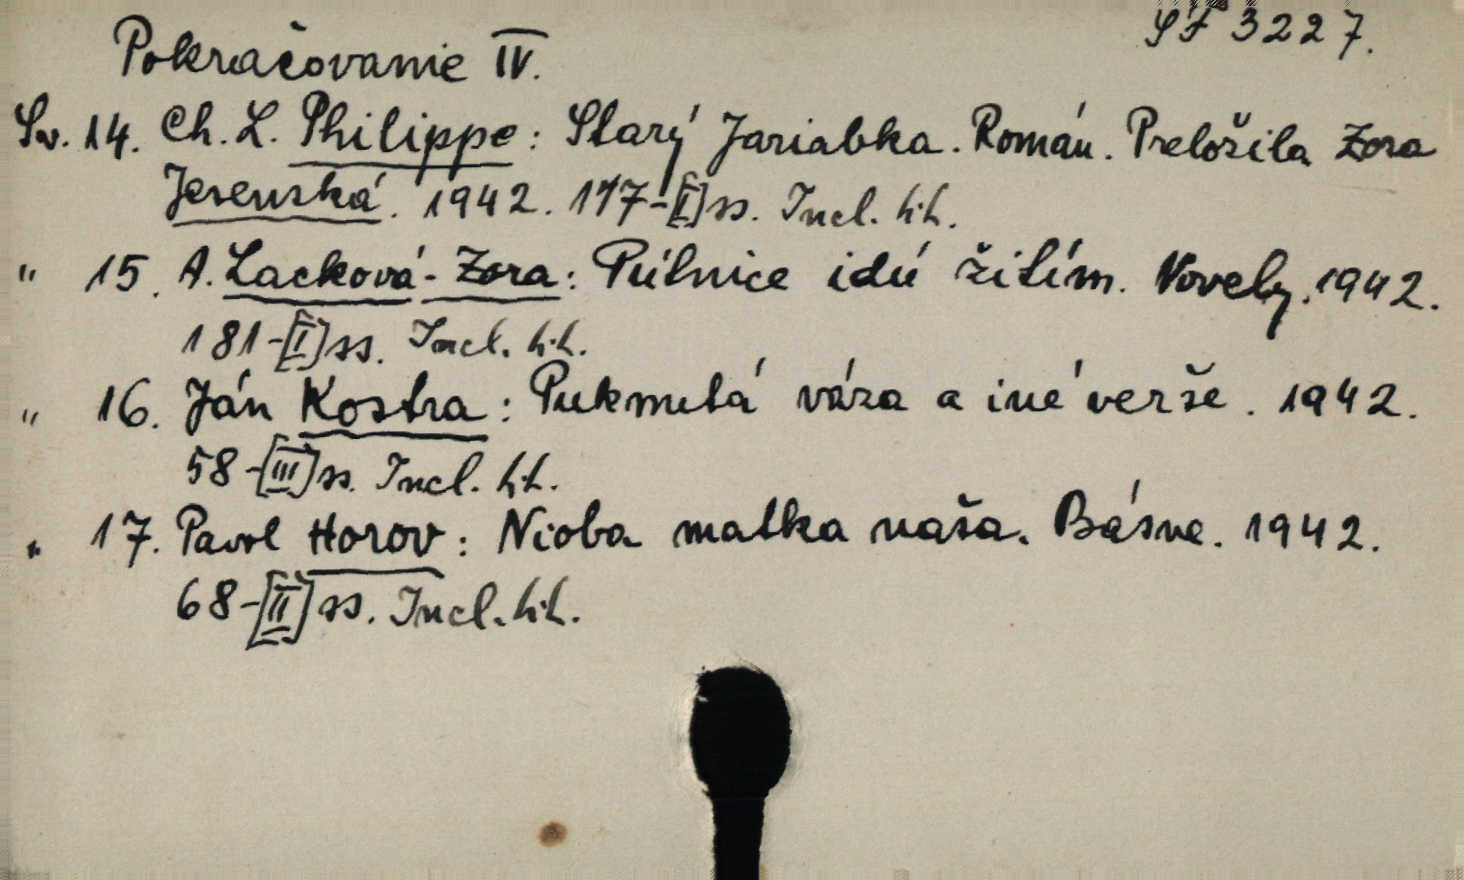 SF 3227.
Pokračovanie IV.
Sv. 14. Ch. L. Philippe: Starý Jariabka. Román. Preložila Zora
Jesenská. 1942. 177-[I] ss. Incl. h.t.
" 15. A. Lacková-Zora: Pútnice idú žitím. Novely. 1942.
181-[I] ss. Incl. h.t.
" 16. Ján Kostra: Puknutá váza a iné verše. 1942.
58-[III] ss. Incl. h.t.
" 17. Pavol Horov: Nioba matka naša. Básne. 1942.
68-[II] ss. Incl. h.t.